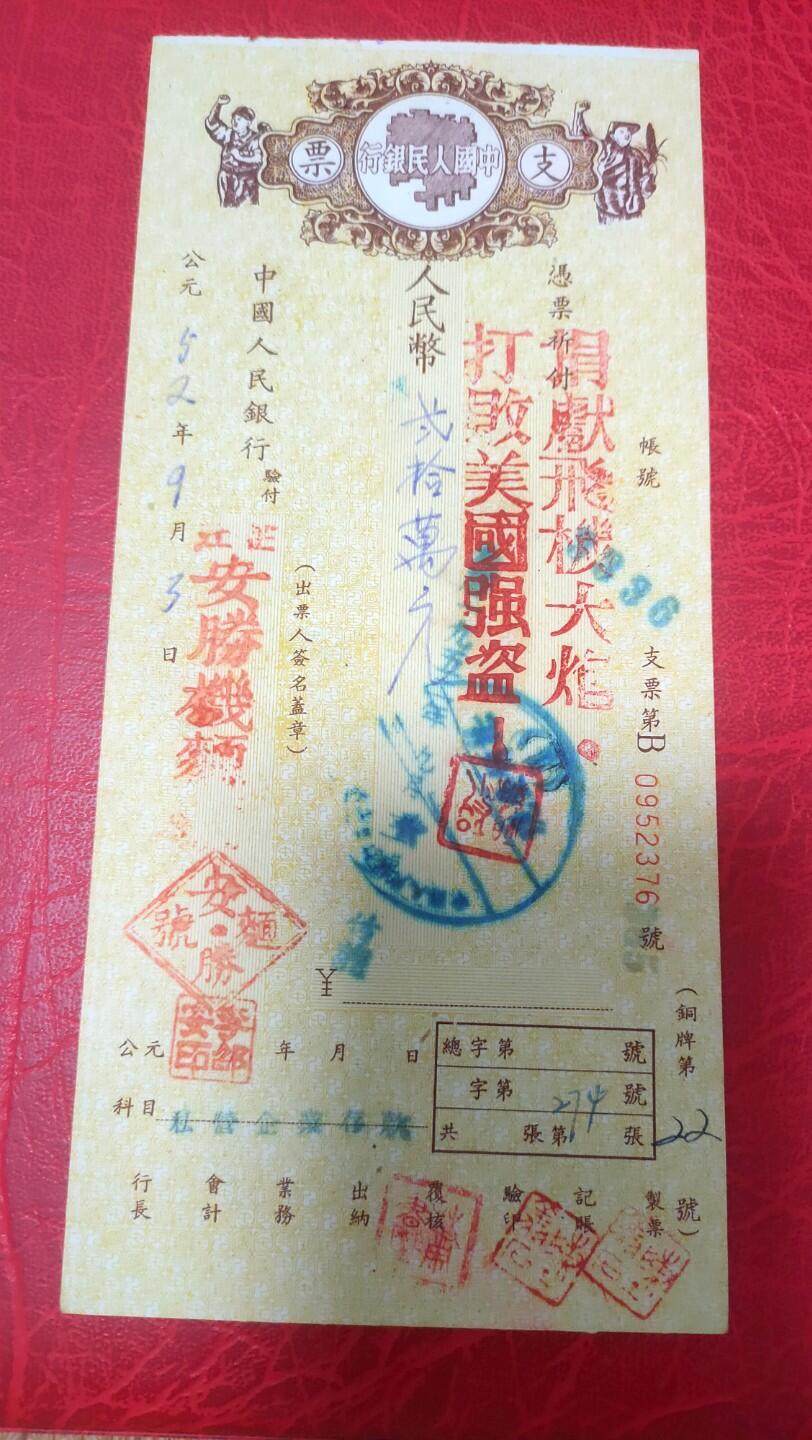 支票
中國人民銀行
帳號
5936
支票第B 0952376 號
憑票祈付
捐獻飛機大炮.
打敗美國强盜!
人民幣 弍拾萬元
¥
付訖
(出票人簽名蓋章)
中國人民銀行 驗付
安勝機麵
安勝麵號
公元52年9月3日
(銅牌第22號)
總字第 號
字第 號
共 張第 張
274
公元 年 月 日
科目 私營企業存款
製票
記賬
驗印
覆核
出納
業務
會計
行長